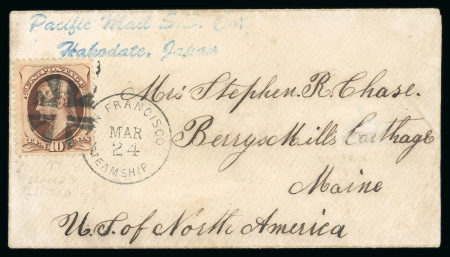 Pacific Mail S.S. Co.
Hakodate, Japan
SAN FRANCISCO
MAR
24
STEAMSHIP
10
Mrs Stephen R. Chase.
Berrys Mills Carthage
Maine
U.S. of North America